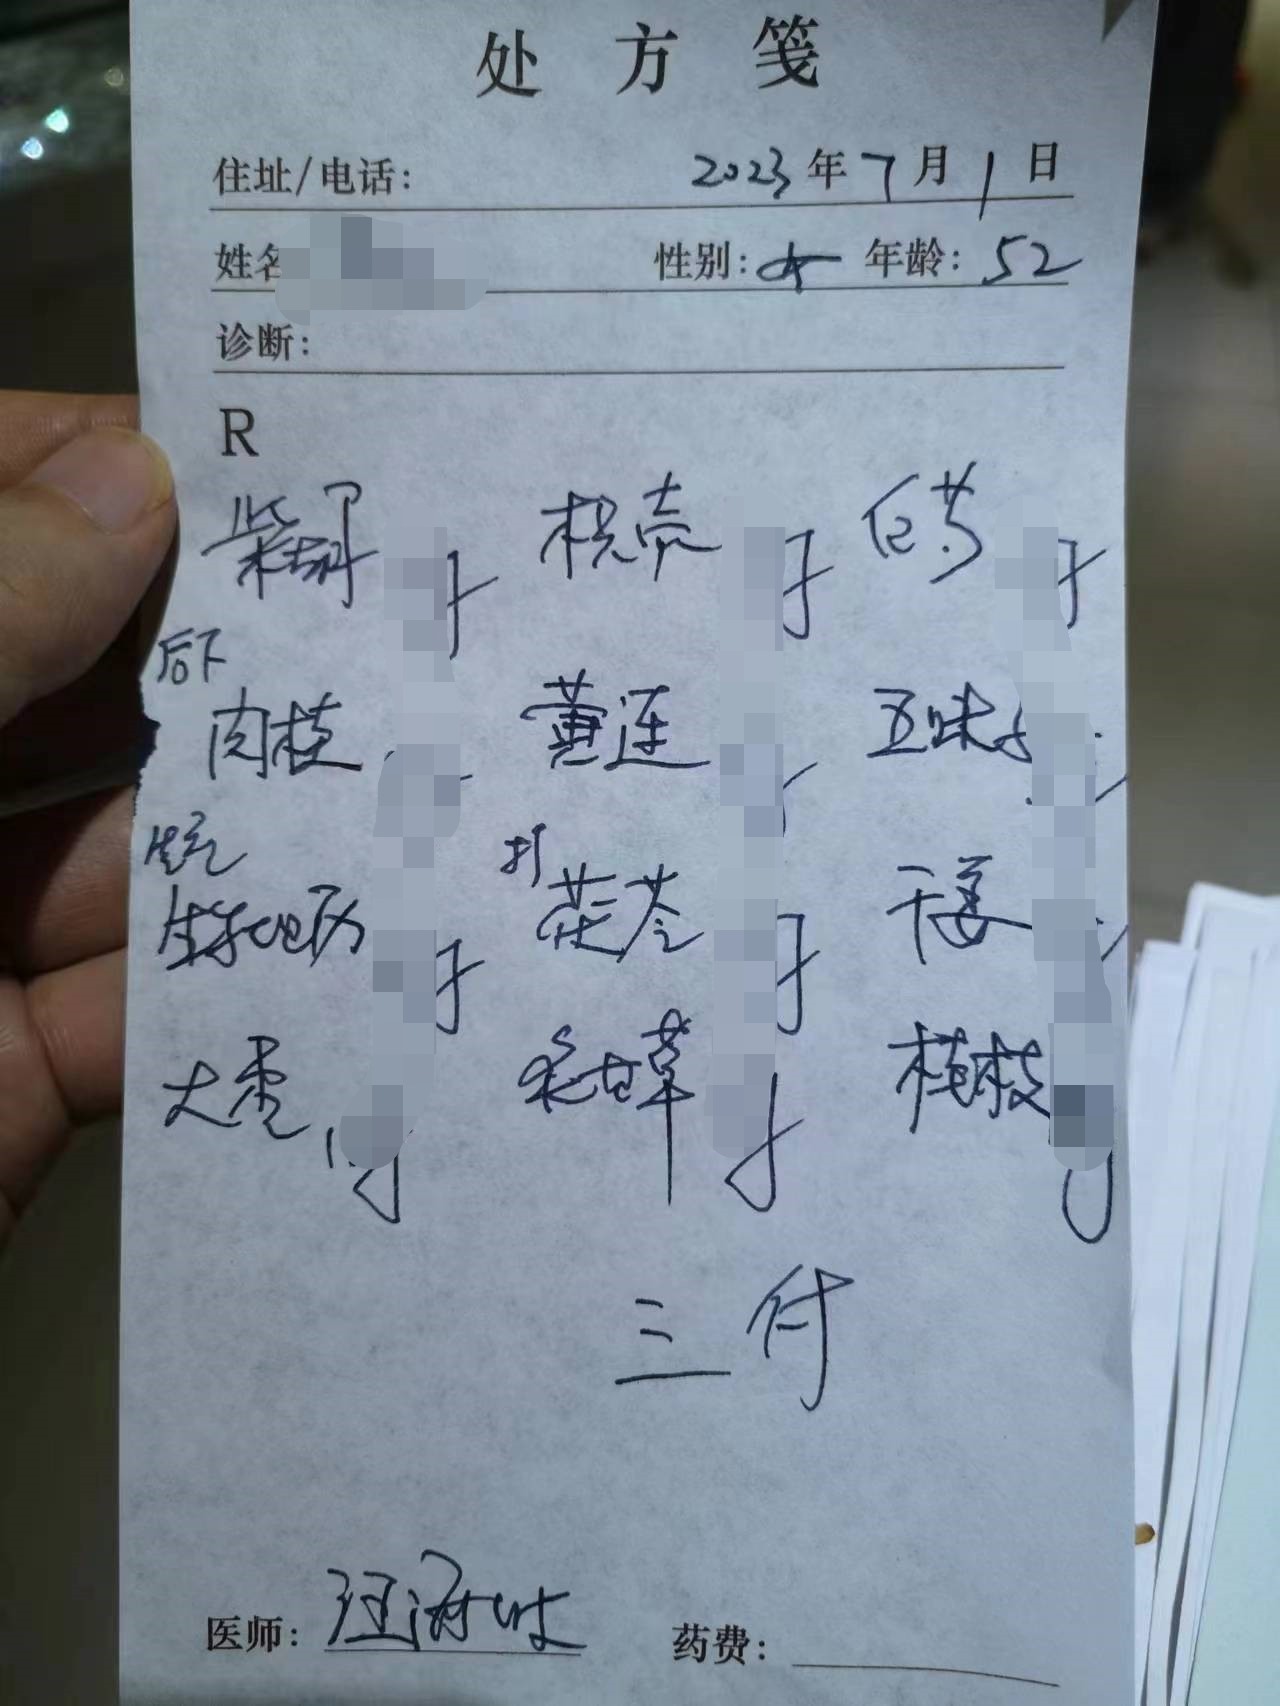 处方笺
住址/电话： 2023年7月1日
姓名 性别：女 年龄：52
诊断：
R
柴胡 枳壳 白芍
后下
肉桂 黄连 五味子
先
生牡蛎 打 茯苓 干姜
大枣 炙甘草 桂枝
三付
医师：汪海 药费：